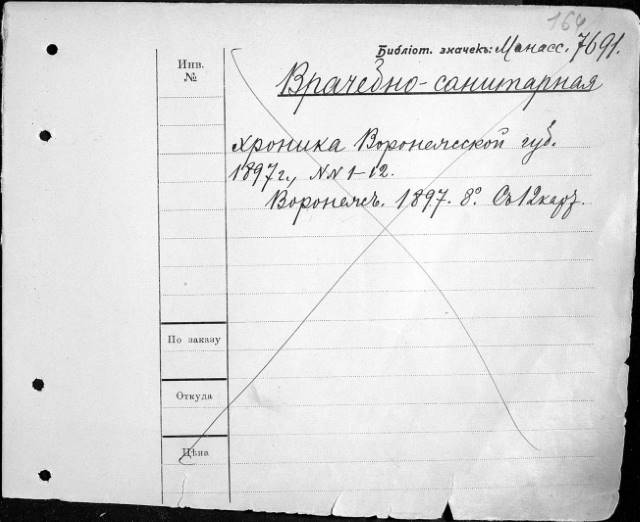 164
Библіот. значекъ: Манасс. 7691.
Инв.
№
Врачебно-санитарная
хроника Воронежской губ.
1897 г., NN 1-12.
Воронежъ. 1897. 8° Съ 12 карт.
По заказу
Откуда
Цѣна